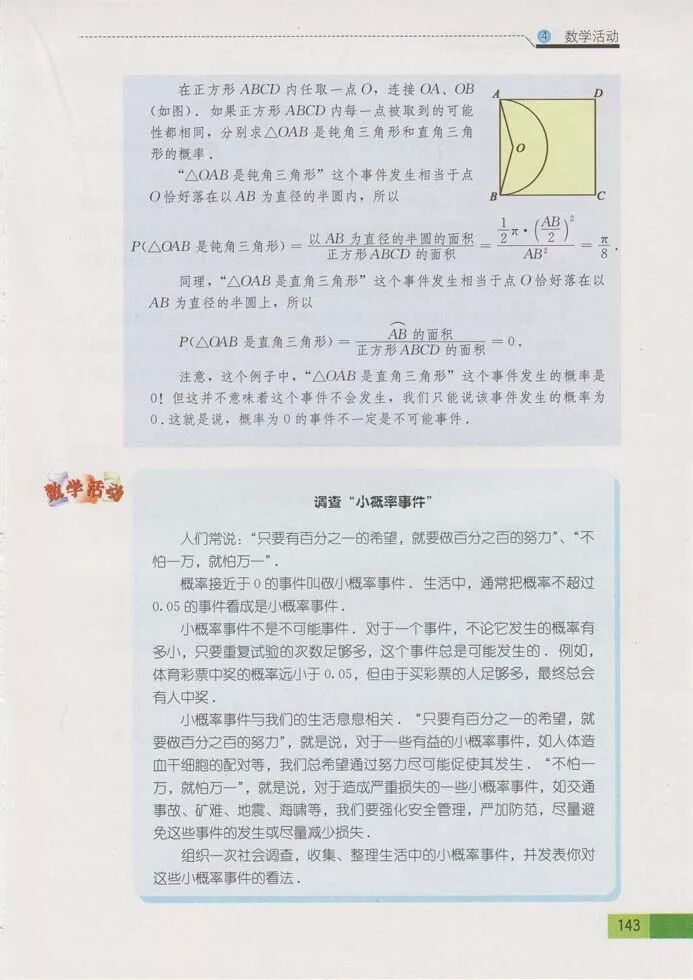 4 数学活动
在正方形 ABCD 内任取一点 O，连接 OA、OB
（如图）. 如果正方形 ABCD 内每一点被取到的可能
性都相同，分别求△OAB 是钝角三角形和直角三角
形的概率.
“△OAB 是钝角三角形”这个事件发生相当于点
O 恰好落在以 AB 为直径的半圆内，所以
A D
O
B C
P(△OAB 是钝角三角形) = 以 AB 为直径的半圆的面积 / 正方形 ABCD 的面积 = 1/2 π·(AB/2)² / AB² = π/8 .
同理，“△OAB 是直角三角形”这个事件发生相当于点 O 恰好落在以
AB 为直径的半圆上，所以
P(△OAB 是直角三角形) = ⌒AB 的面积 / 正方形 ABCD 的面积 = 0.
注意，这个例子中，“△OAB 是直角三角形”这个事件发生的概率是
0！但这并不意味着这个事件不会发生，我们只能说该事件发生的概率为
0.这就是说，概率为 0 的事件不一定是不可能事件.
数学活动
调查“小概率事件”
人们常说：“只要有百分之一的希望，就要做百分之百的努力”、“不
怕一万，就怕万一”.
概率接近于 0 的事件叫做小概率事件. 生活中，通常把概率不超过
0.05 的事件看成是小概率事件.
小概率事件不是不可能事件. 对于一个事件，不论它发生的概率有
多小，只要重复试验的次数足够多，这个事件总是可能发生的. 例如，
体育彩票中奖的概率远小于 0.05，但由于买彩票的人足够多，最终总会
有人中奖.
小概率事件与我们的生活息息相关. “只要有百分之一的希望，就
要做百分之百的努力”，就是说，对于一些有益的小概率事件，如人体造
血干细胞的配对等，我们总希望通过努力尽可能促使其发生. “不怕一
万，就怕万一”，就是说，对于造成严重损失的一些小概率事件，如交通
事故、矿难、地震、海啸等，我们要强化安全管理，严加防范，尽量避
免这些事件的发生或尽量减少损失.
组织一次社会调查，收集、整理生活中的小概率事件，并发表你对
这些小概率事件的看法.
143